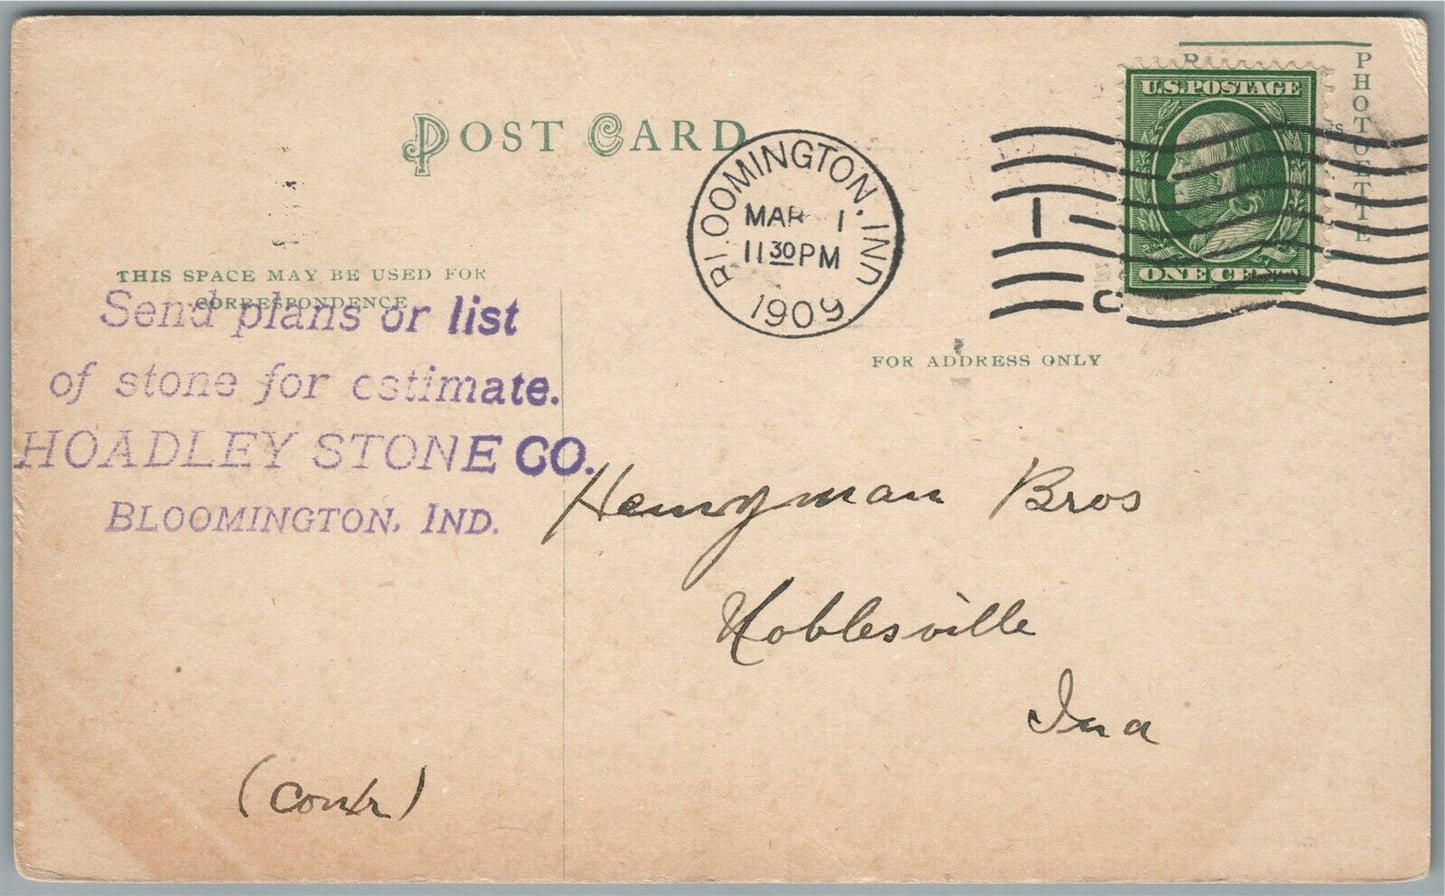 POST CARD
PHOTOETTE
U.S. POSTAGE
ONE CENT
BLOOMINGTON, IND.
MAR 1
11 30 PM
1909
1
C
THIS SPACE MAY BE USED FOR
CORRESPONDENCE
FOR ADDRESS ONLY
Send plans or list
of stone for estimate.
HOADLEY STONE CO.
BLOOMINGTON, IND.
Bros
Noblesville
Ind
(Contr)